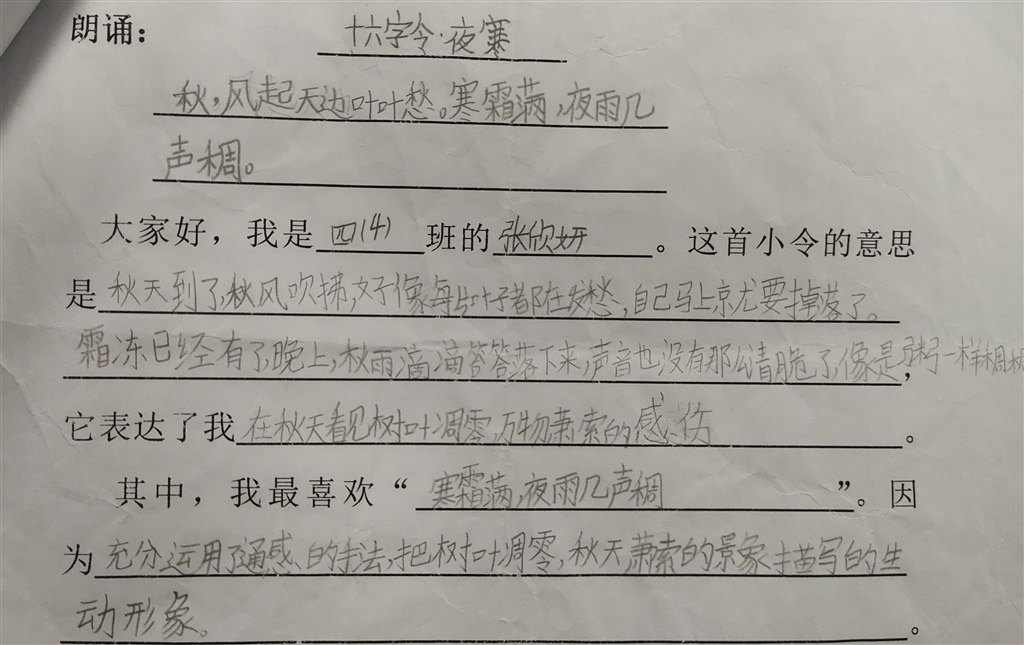 朗诵：十六字令·夜寒
秋，风起天边叶叶愁。寒霜满，夜雨几
声稠。
大家好，我是四(4)班的张欣妍。这首小令的意思
是秋天到了，秋风吹拂，好像每片叶子都在发愁，自己马上就要掉落了。
霜冻已经有了，晚上，秋雨滴滴答答落下来，声音也没有那么清脆了，像是粥一样稠，
它表达了我在秋天看见树叶凋零，万物萧索的感伤。
其中，我最喜欢“寒霜满，夜雨几声稠”。因
为充分运用了通感的手法，把树叶凋零，秋天萧索的景象描写的生
动形象。。